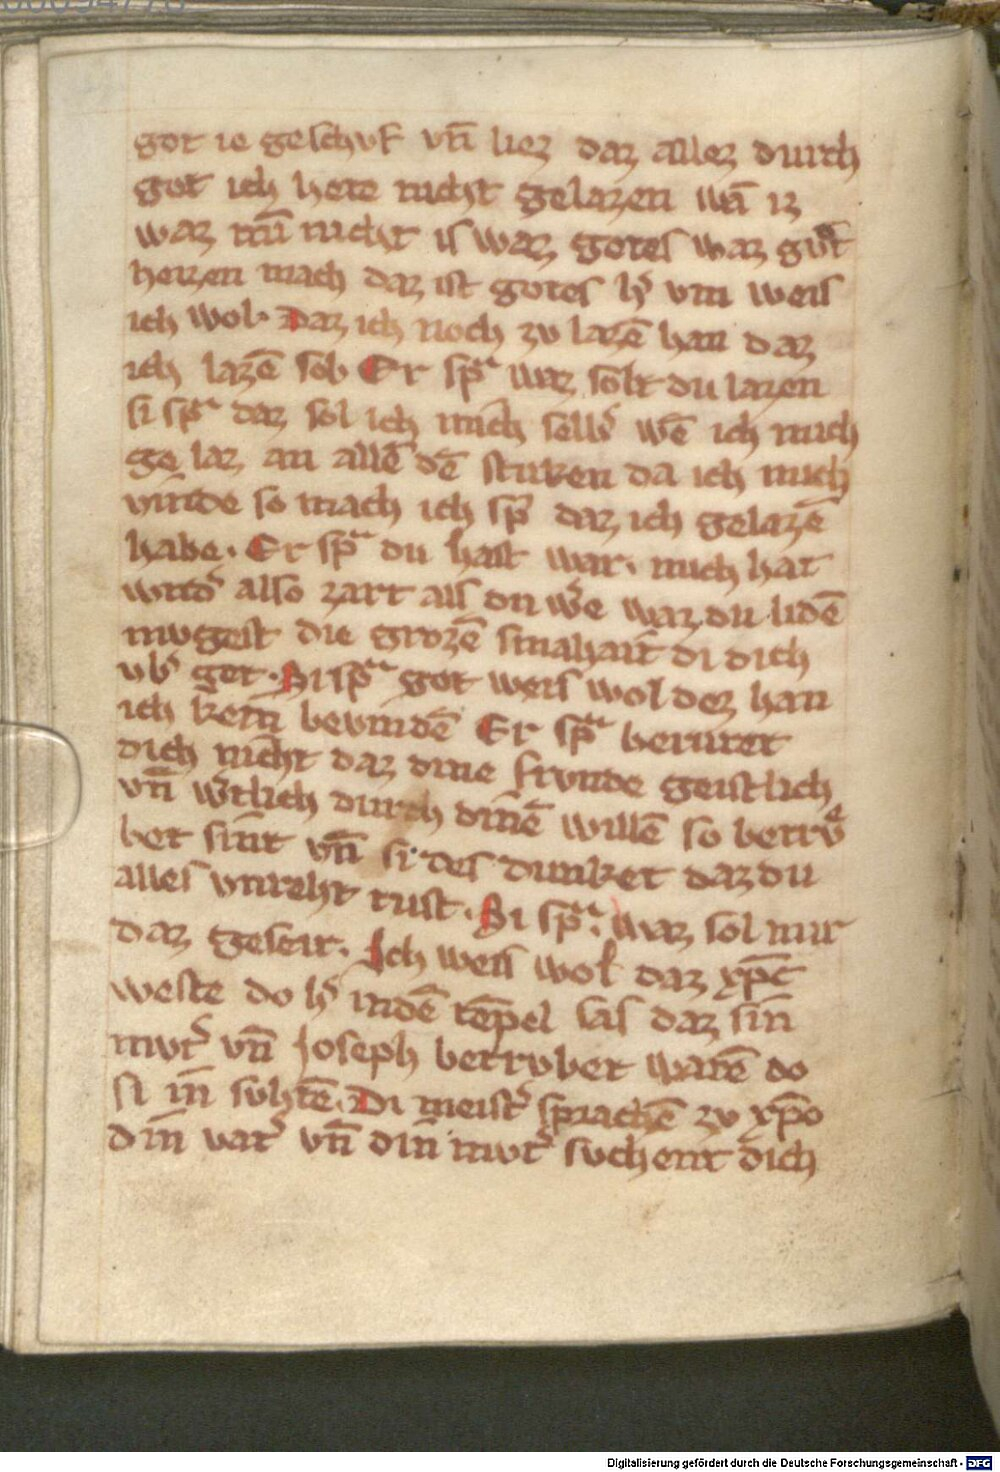 got ie geschvf vn̄ liez daz allez durch
got ich hete nicht gelazen wā iz
waz mī nicht is waz gotes waz gvͦt
heizen mach daz ist gotes h᷑ vm weis
ich wol· Daz ich noch zv lazē han daz
ich lazē sol· Er spᷓ waz solt du lazen
si spᷓ daz sol ich mich selb᷑ wē ich mich
ge laz an allē dē stuken da ich mich
vinde so mach ich sp᷑ daz ich gelazē
habe· Er spᷓ du hast war· mich hat
wnd᷑ also zart als du w᷑e waz du lidē
mvgest die grozē smahait di dich
vb᷑ get· Si spᷓ got weis wol dez han
ich kein bevindē Er spᷓ beruret
dich nicht daz dine frvnde geistlich
vn̄ w᷑tlich durch dinē willē so betrvͦ
bet sint vn̄ si des dunket daz du
alles vnreht tust· Si spᷓ· waz sol mir
daz geseit· Ich weis wol daz xp̄c
weste do h᷑ indē tēpel sas daz sin
mvt᷑ vn̄ Joseph betrvbet warē do
si in svhtē· Di meist᷑ sprachē zv xp̄o
din vat᷑ vn̄ din mvt᷑ svchent dich